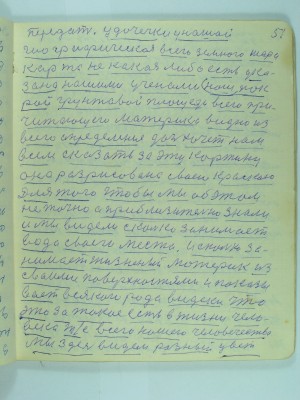 57
передат. удочки у нашой
географическая всего земного шара
карта не какая либо есть ука-
зана нашими учеными
рой грунтовой площадь всего при-
читающего материка видно из
всего определения да хочет нам
всем сказать за эту картину
она разрисована своей краскаю
для того чтобы мы об этом
не точно а приблизительно знали
и мы видем сколько занимает
вода своего места, и сколько за-
нимает жизненый материк из
своими поверхностями и показы
вает всякого рода видоки что
это за такое есть в жизни чело-
века все всего нашего человечества
мы здесь видем разный цвет